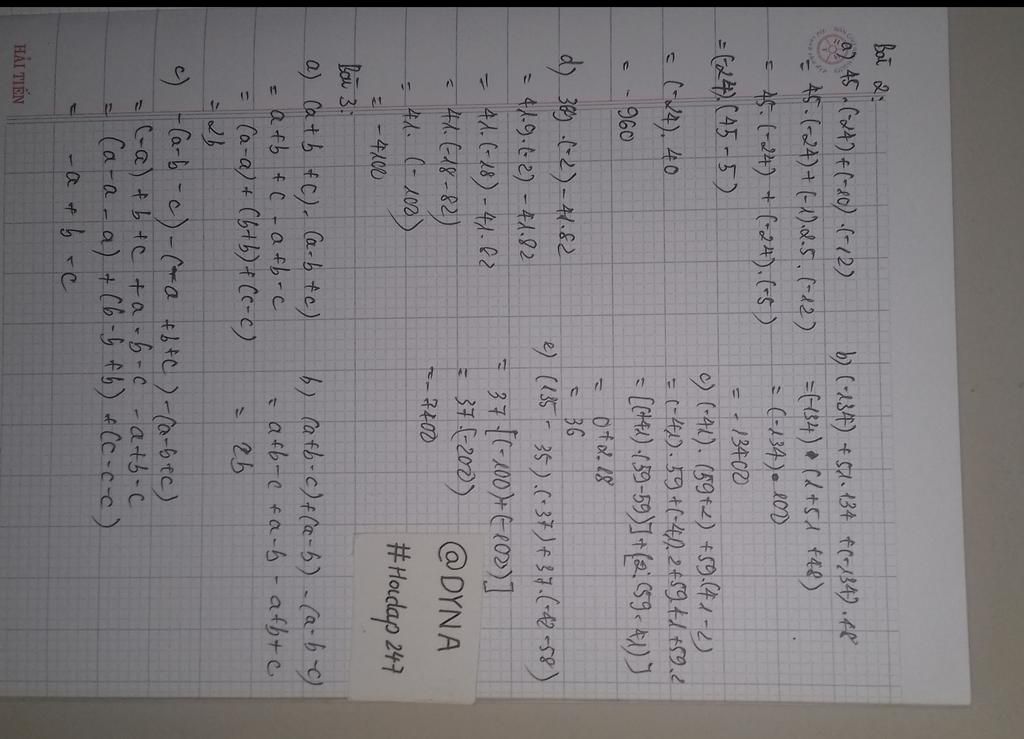 Bài 2:
a) 45.(-24)+(-10).(-12)
= 45.(-24)+(-1).2.5.(-12)
= 45.(-24) + (-24).(-5)
= (-24).(45-5)
= (-24).40
= -960
b) (-134) + 51.134 + (-134).48
= (-134) . (1+51 +48)
= (-134).100
= -13400
c) (-41).(59+2) + 59.(41-2)
= (-41).59+(-41).2+59.41+59.2
= [(41).(59-59)]+[2.(59-41)]
= 0+2.18
= 36
d) 369.(-2)-41.82
= 41.9.(-2)-41.82
= 41.(-18)-41.82
= 41.(-18-82)
= 41.(-100)
= -4100
e) (135-35).(-37)+37.(-42-58)
= 37.[(-100)+(-100)]
= 37.(-200)
= -7400
Bài 3:
a) (a+b+c)-(a-b+c)
= a+b+c-a+b-c
= (a-a)+(b+b)+(c-c)
= 2b
b) (a+b-c)+(a-b)-(a-b-c)
= a+b-c+a-b-a+b+c
= 2b
c) -(a-b-c)-(-a+b+c)-(a-b+c)
= (-a)+b+c+a-b-c-a+b-c
= (a-a-a)+(b-b+b)+(c-c-c)
= -a+b-c
@DYNA
#Hoidap247
HẢI TIẾN